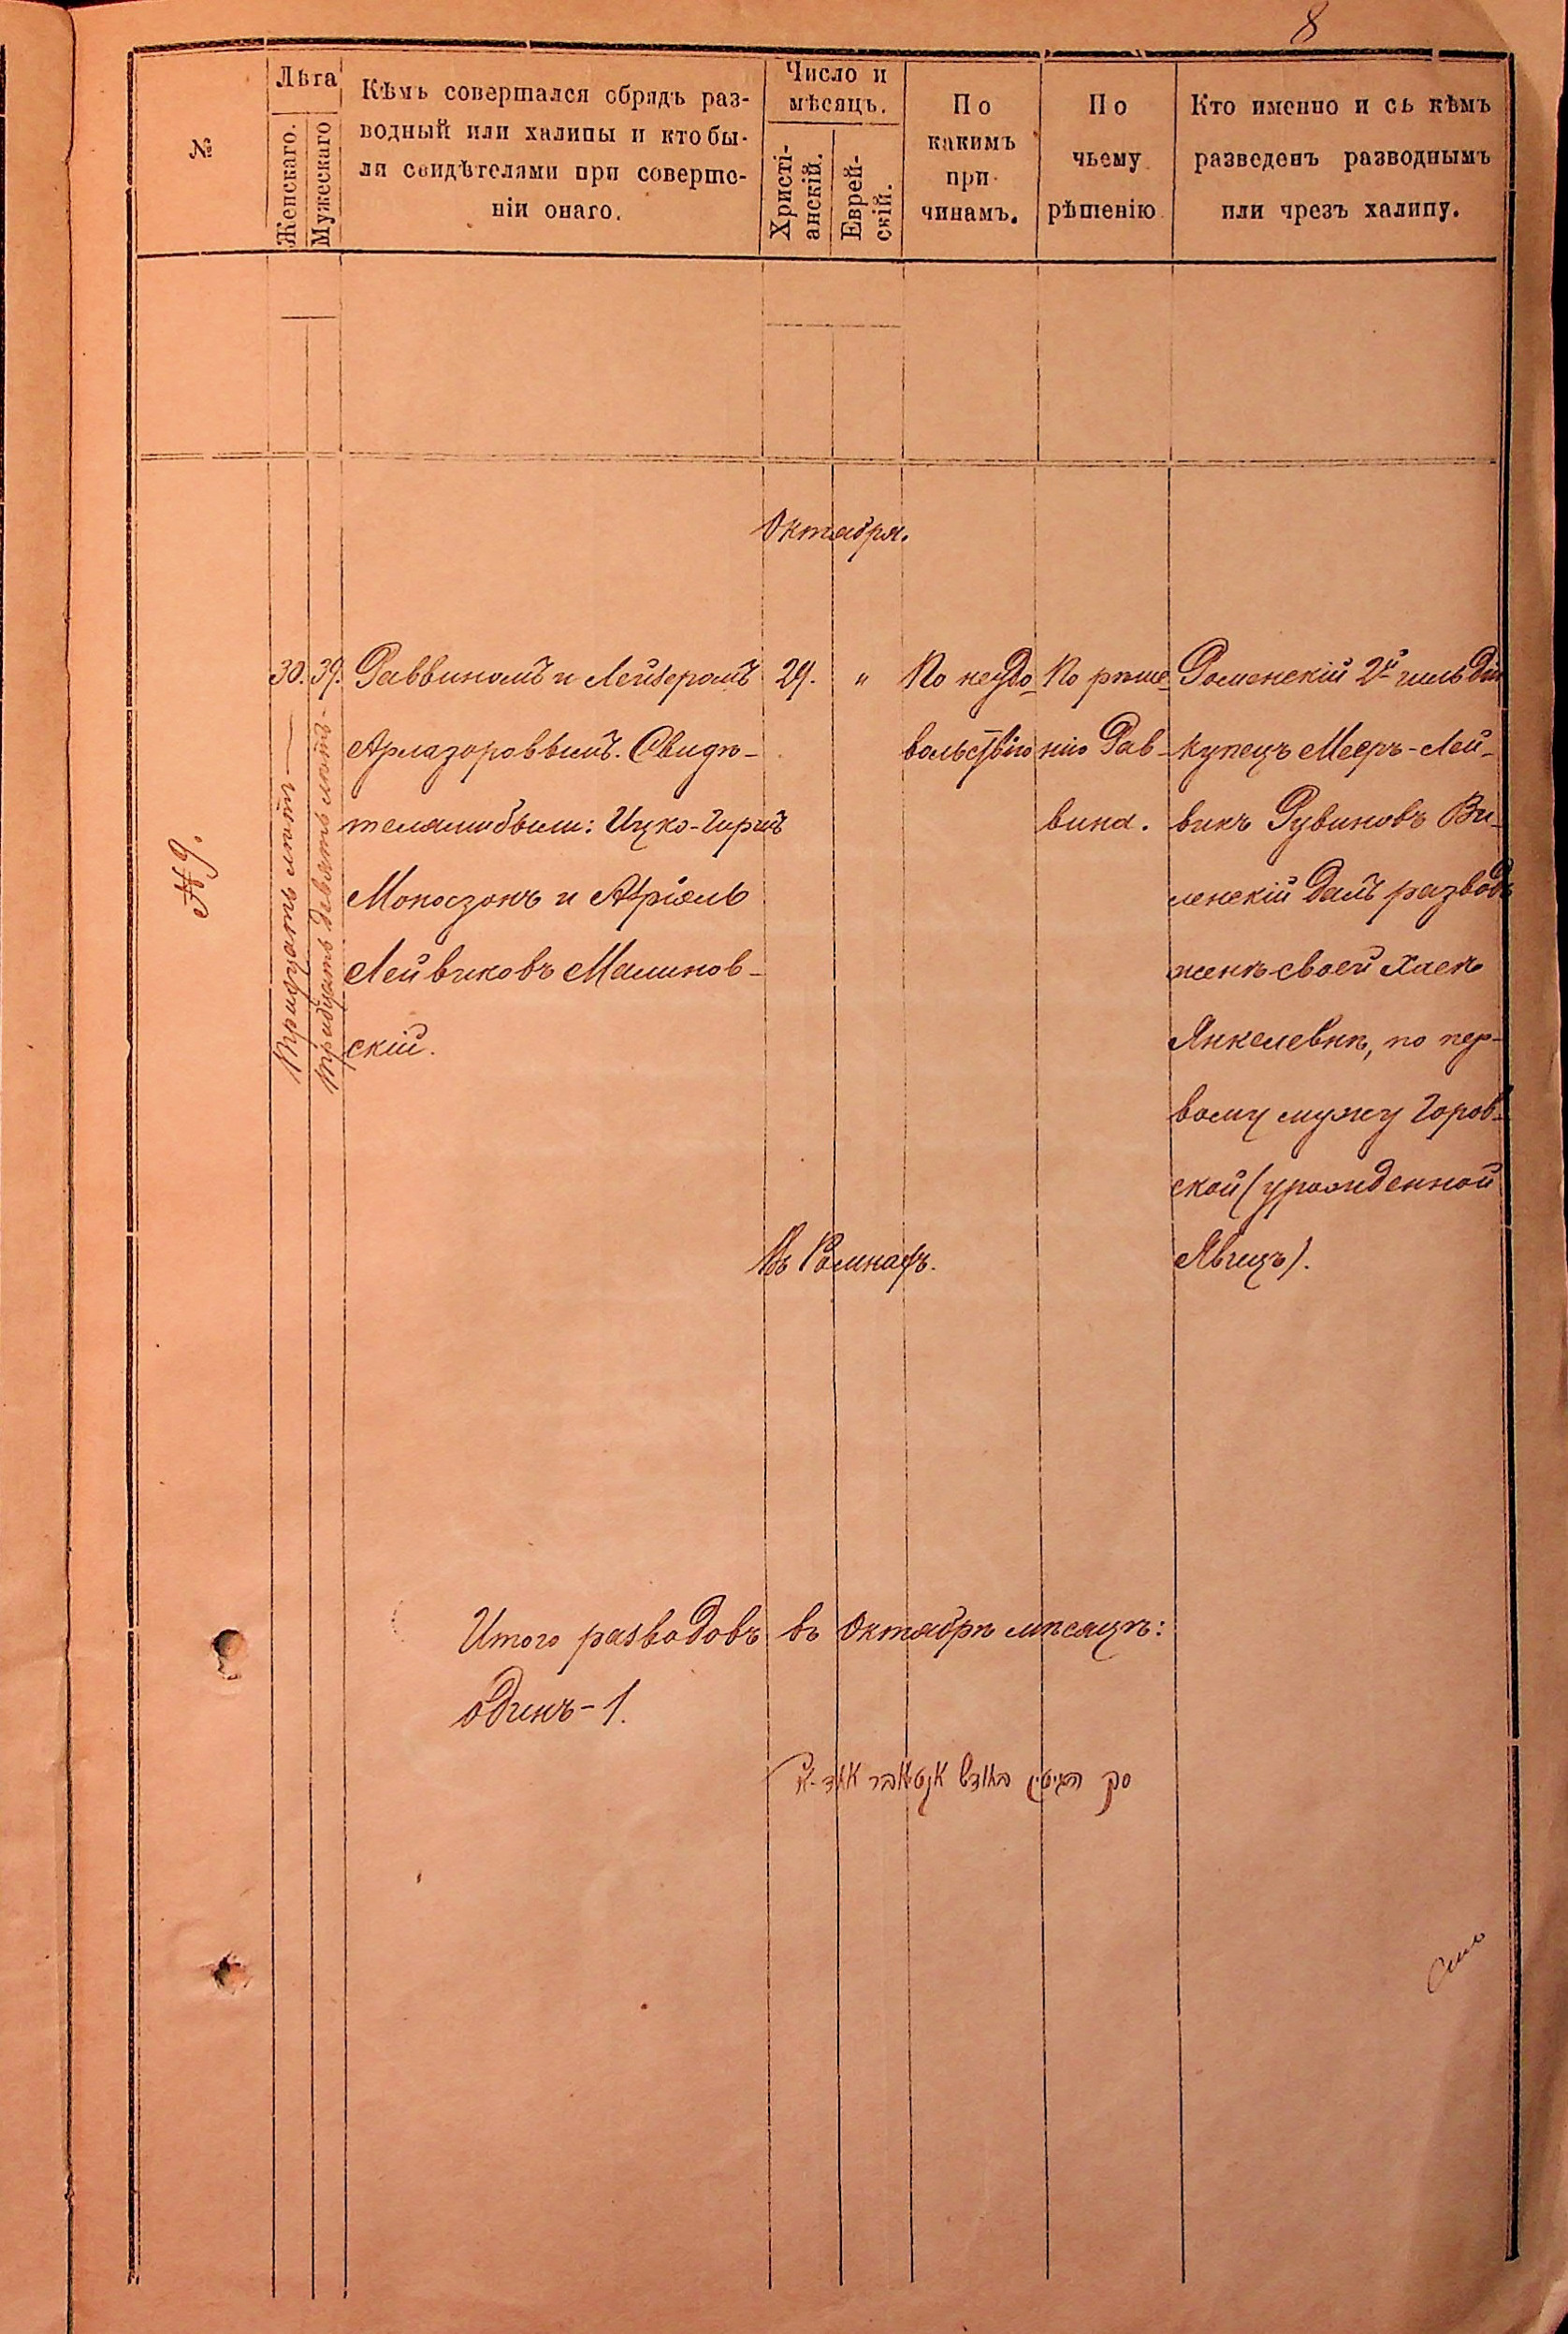 8
№
Лѣта
Женскаго.
Мужескаго
Кѣмъ совершался обрядъ раз-
водный или халицы и кто бы-
ли свидѣтелями при соверше-
ніи онаго.
Число и
мѣсяцъ.
Христі-
анскій.
Еврей-
скій.
По
какимъ
при-
чинамъ.
По
чьему
рѣшенію
Кто именно и съ кѣмъ
разведенъ разводнымъ
или чрезъ халицу.
Октября.
№ 9.
30.
Тридцать лѣтъ
39.
Тридцать девять лѣтъ
Раввиномъ и Лейзеромъ
Арлазоровымъ. Свидѣ-
телями были: Ицко-Гиршъ
Моносзонъ и Авріель
Лейвиковъ Малинов-
скій.
29.
"
По неудо-
вольствію
По рѣше-
нію Рав-
вина.
Роменскій 2й гильдіи
купецъ Мееръ-Лей-
викъ Рувиновъ Ви-
ленскій далъ разводъ
женѣ своей Хаѣ
Янкелевнѣ, по пер-
вому мужу Горов-
ской (урожденной
Явицъ).
Въ Ромнахъ.
Итого разводовъ въ Октябрѣ мѣсяцѣ:
одинъ - 1.
סך הגיטין בחודש אקטאבר אחד - א